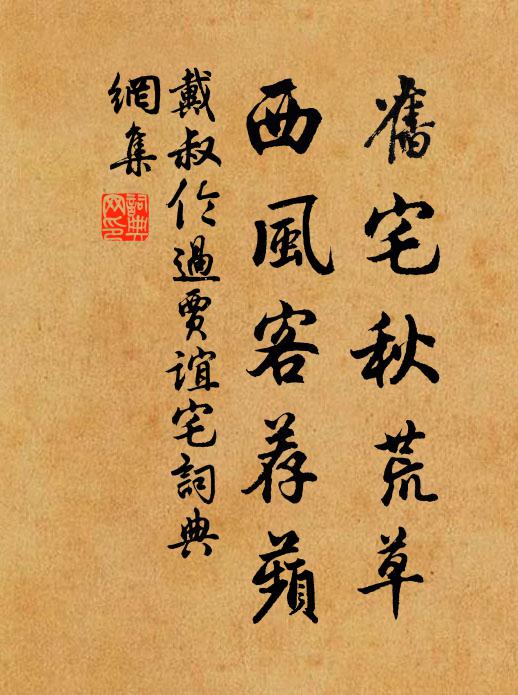 舊宅秋荒草
西風客荐蘋
戴叔伦過賈誼宅詞典
網集
詞典网印